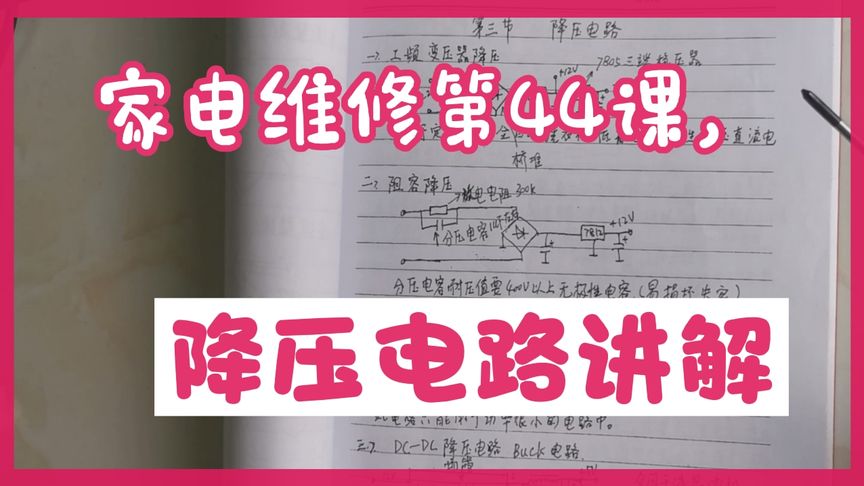 第三节 降压电路
一、工频变压器降压 7805三端稳压器
+12V
家电维修第44课,
直流电
桥堆
二、阻容降压
放电电阻300k
分压电容
7812
+12V
分压电容耐压值要400V以上无极性电容(易损坏失容)
降压电路讲解
此电路只能用于功率很小的电路中。
三、DC-DC降压电路 Buck电路